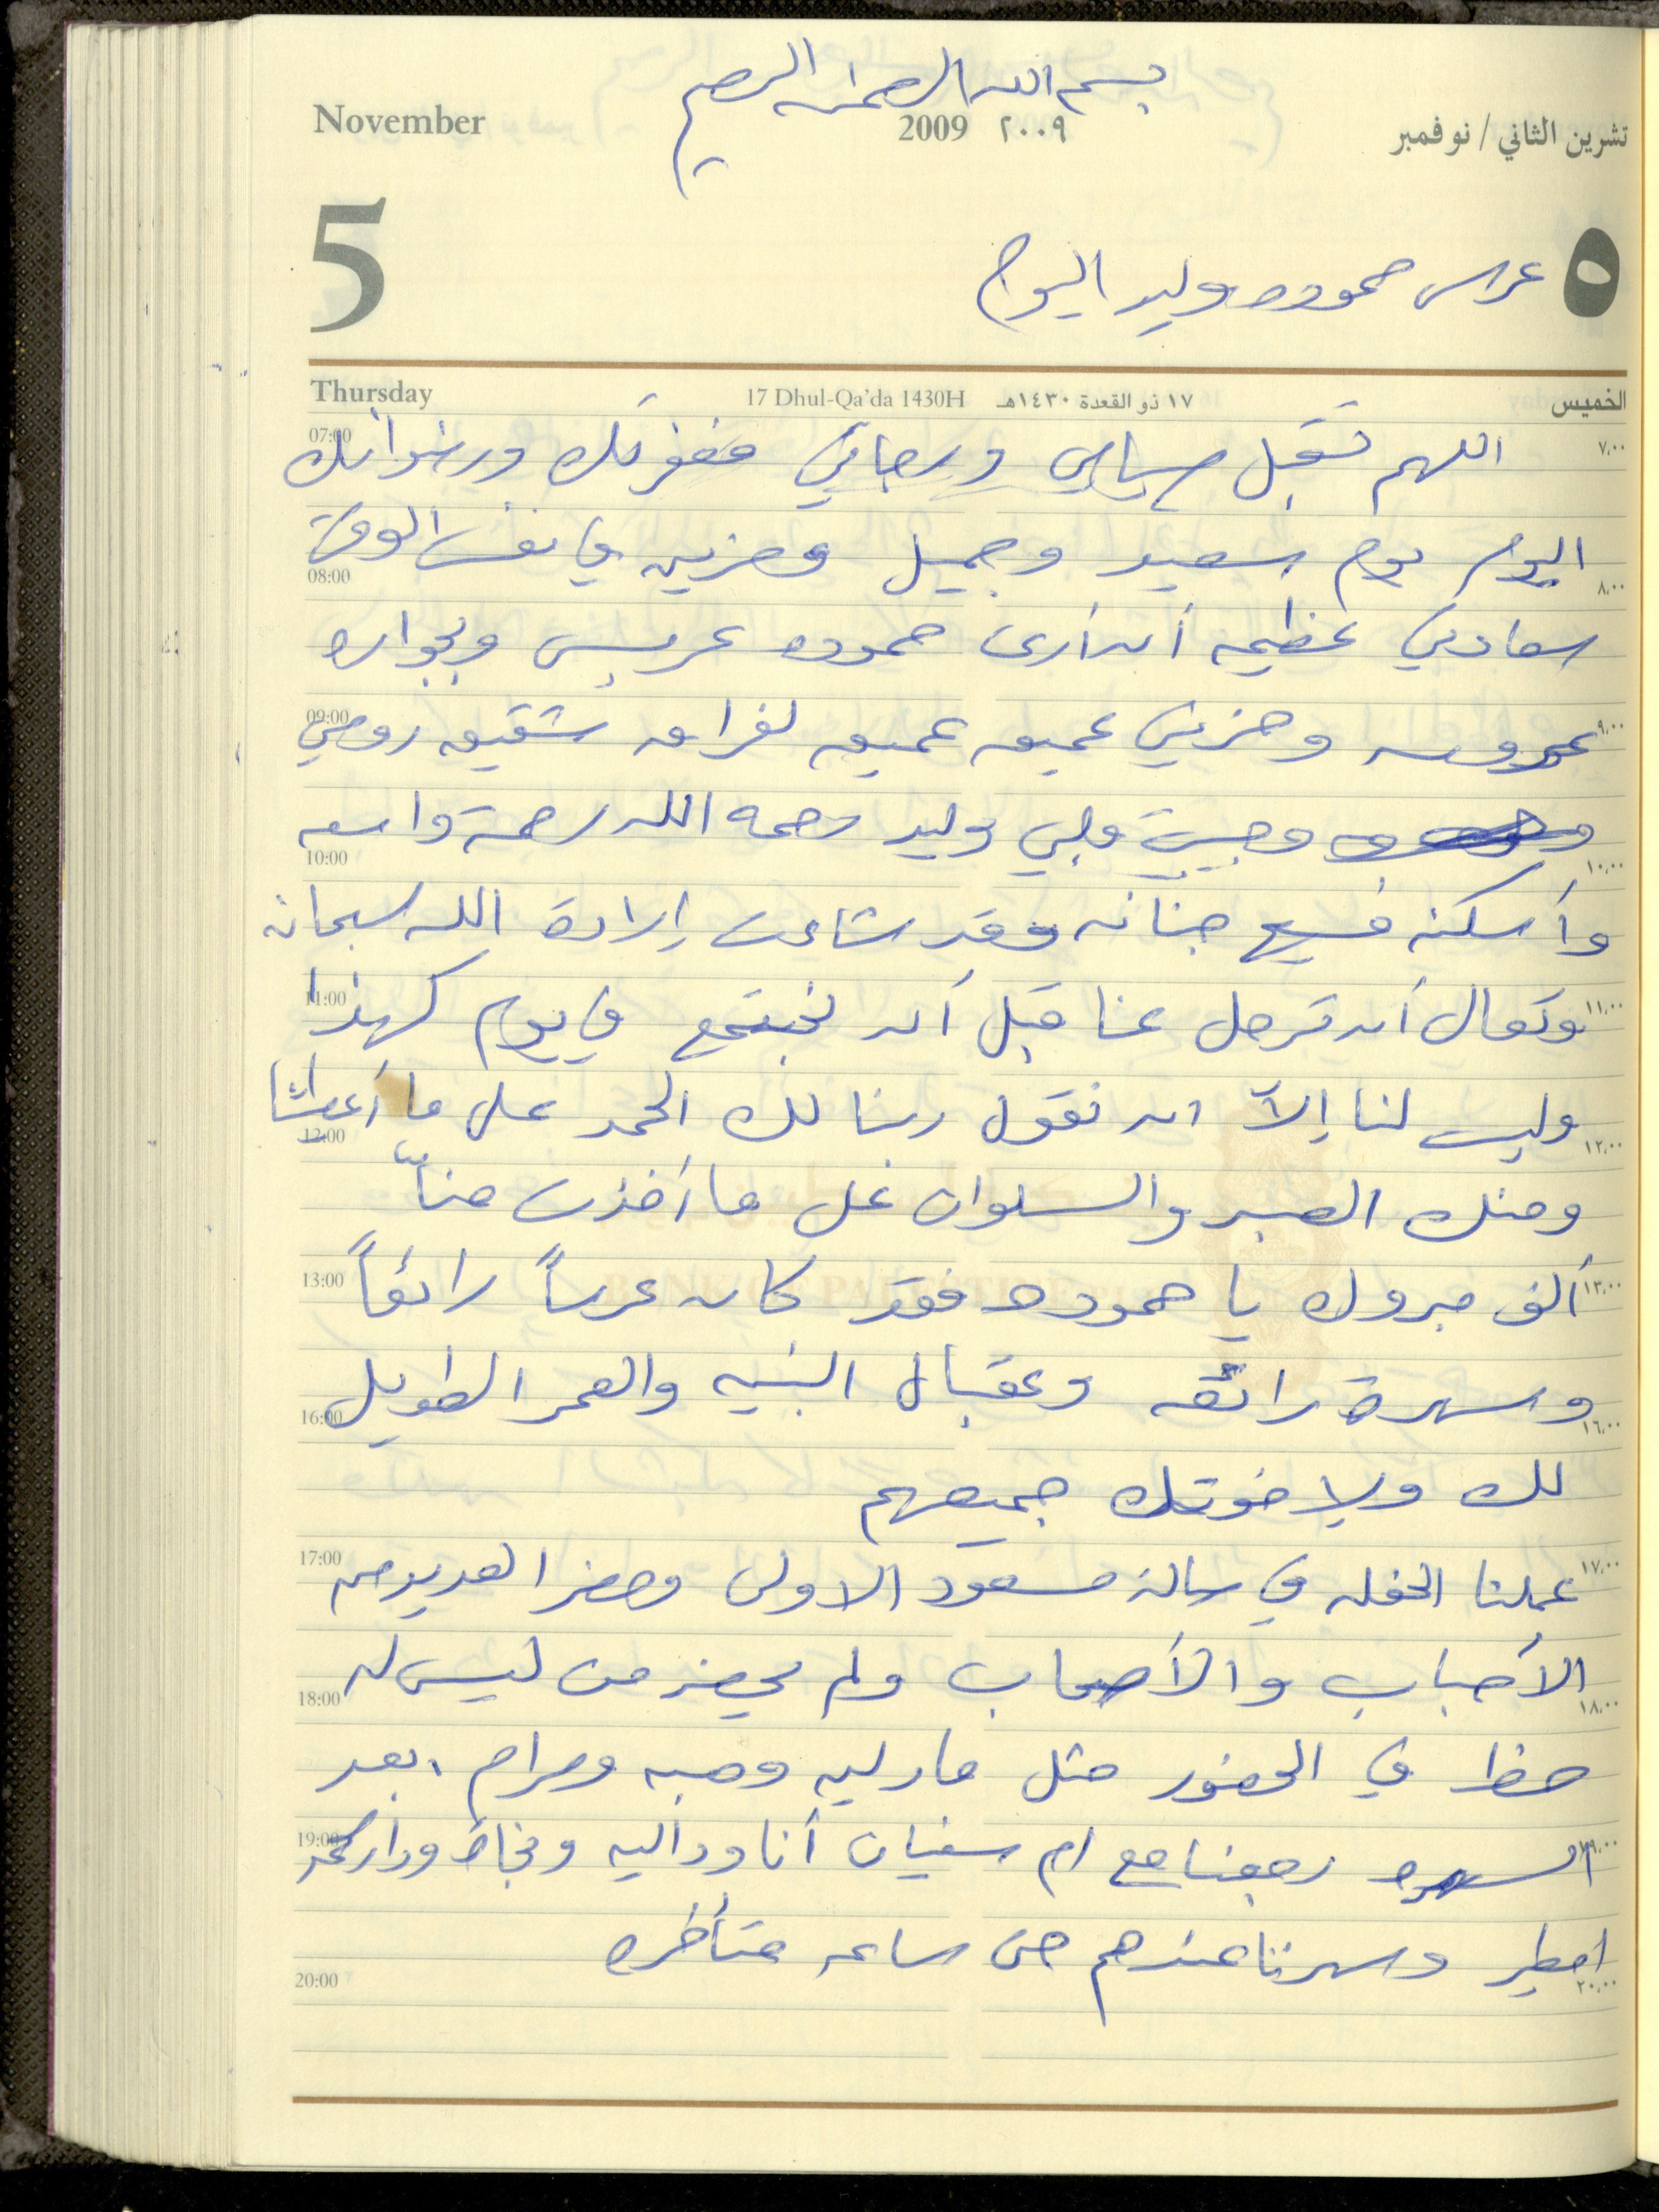 بسم الله الرحمن الرحيم
November 2009 ٢٠٠٩ تشرين الثاني / نوفمبر
5 ٥
عرس حموده وليد اليوم
Thursday 17 Dhul-Qa'da 1430H ١٧ ذو القعدة ١٤٣٠هـ الخميس
07:00 ٧,٠٠
اللهم تقبل صيامي ورجائي مغفرتك ورضوانك
اليوم يوم سعيد وجميل وحزين في نفس الوقت
08:00 ٨,٠٠
سعادتي عظيمه أن أرى حموده عريس وبجواره
09:00 ٩,٠٠
عروسه وحزني عميق عميق لفراق شقيق روحي
وحبيب قلبي وليد رحمه الله رحمة واسعه
10:00 ١٠,٠٠
وأسكنه فسيح جنانه فقد شاءت إرادة الله سبحانه
11:00 ١١,٠٠
وتعالى أن ترحل عنا قبل أن نجتمع في يوم كهذا
وليس لنا إلاّ ان نقول ربنا لك الحمد على ما أعطيتنا
12:00 ١٢,٠٠
ومنك الصبر والسلوان على ما أخذت منّا
13:00 ١٣,٠٠
ألف مبروك يا حموده فقد كان عرساً رائعاً
وسهرة رائعه وعقبال البنيه والعمر الطويل
16:00 ١٦,٠٠
لك ولإخوتك جميعهم
17:00 ١٧,٠٠
عملنا الحفله في صالة مسعود الاولى وحضر العديد من
الأحباب والأصحاب ولم يحضر من ليس له
18:00 ١٨,٠٠
حظا في الحضور مثل مارلين وهبه ومرام . بعد
19:00 ١٩,٠٠
السهره رجعنا مع ام سفيان أنا وداليه ونجاة ودار
امطير وسهرنا عندهم حتى ساعه متأخره
20:00 ٢٠,٠٠